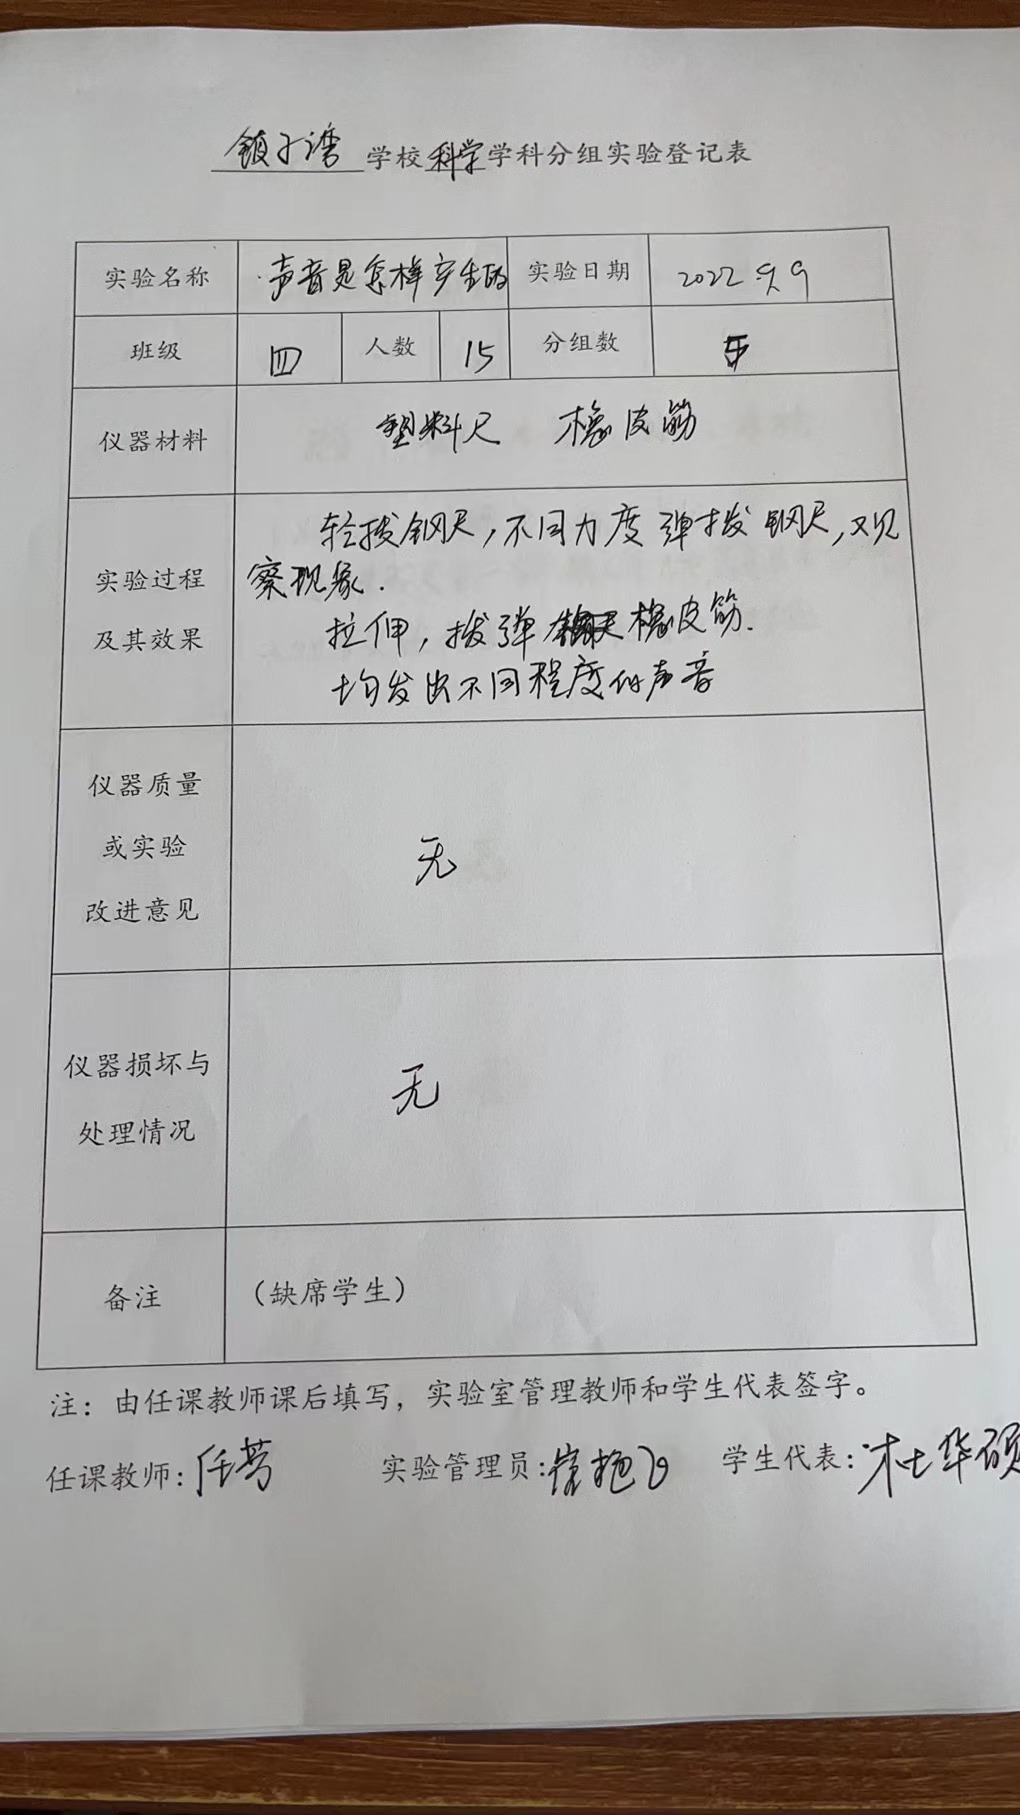 镇子湾学校科学学科分组实验登记表
实验名称 声音是怎样产生的 实验日期 2022.9.9
班级 四 人数 15 分组数
仪器材料 塑料尺 橡皮筋
实验过程及其效果
轻拨钢尺,不同力度弹拨钢尺,观
察现象.
拉伸,拨弹橡皮筋.
均发出不同程度的声音
仪器质量
或实验
改进意见
无
仪器损坏与
处理情况
无
备注 (缺席学生)
注:由任课教师课后填写,实验室管理教师和学生代表签字。
任课教师:任芳 实验管理员: 学生代表:杜华硕